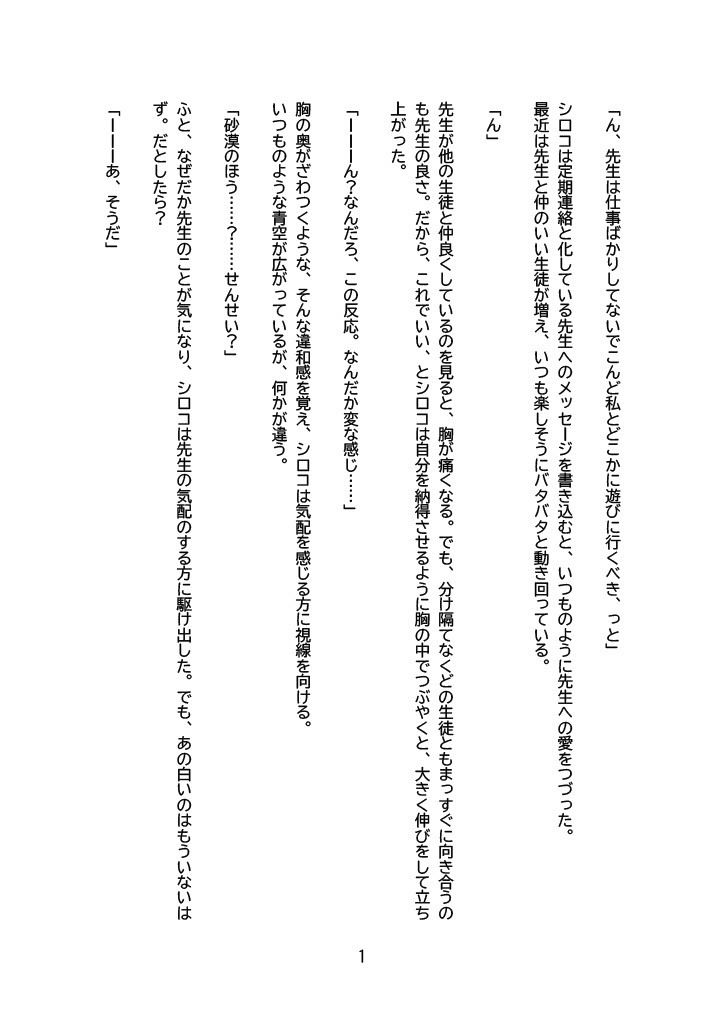 「ん、先生は仕事ばかりしてないでこんど私とどこかに遊びに行くべき、っと」
シロコは定期連絡と化している先生へのメッセージを書き込むと、いつものように先生への愛をつづった。
最近は先生と仲のいい生徒が増え、いつも楽しそうにバタバタと動き回っている。
「ん」
先生が他の生徒と仲良くしているのを見ると、胸が痛くなる。でも、分け隔てなくどの生徒ともまっすぐに向き合うの
も先生の良さ。だから、これでいい、とシロコは自分を納得させるように胸の中でつぶやくと、大きく伸びをして立ち
上がった。
「ーーーん?なんだろ、この反応。なんだか変な感じ……」
胸の奥がざわつくような、そんな違和感を覚え、シロコは気配を感じる方に視線を向ける。
いつものような青空が広がっているが、何かが違う。
「砂漠のほう……?……せんせい?」
ふと、なぜだか先生のことが気になり、シロコは先生の気配のする方に駆け出した。でも、あの白いのはもういないは
ず。だとしたら?
「ーーーあ、そうだ」
1